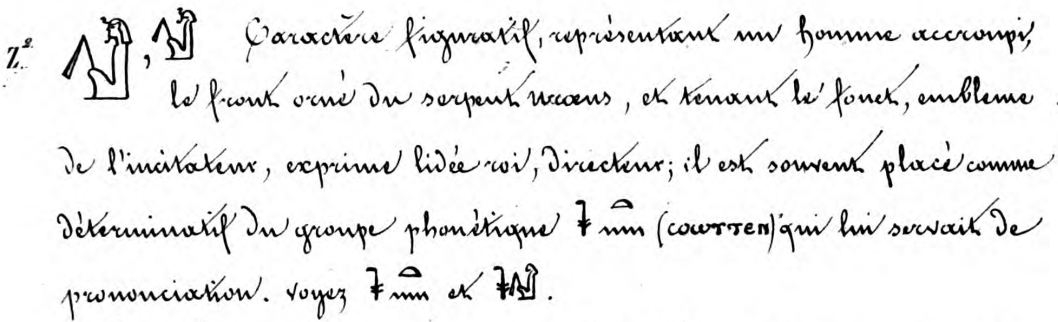 Z². , Caractère figuratif, représentant un homme accroupi,
le front orné du serpent uraeus, et tenant le fouet, embleme
de l'incitateur, exprime lidée roi, directeur; il est souvent placé comme
déterminatif du groupe phonétique (ⲥⲟⲩⲧⲧⲉⲛ) qui lui servait de
prononciation. voyez et .